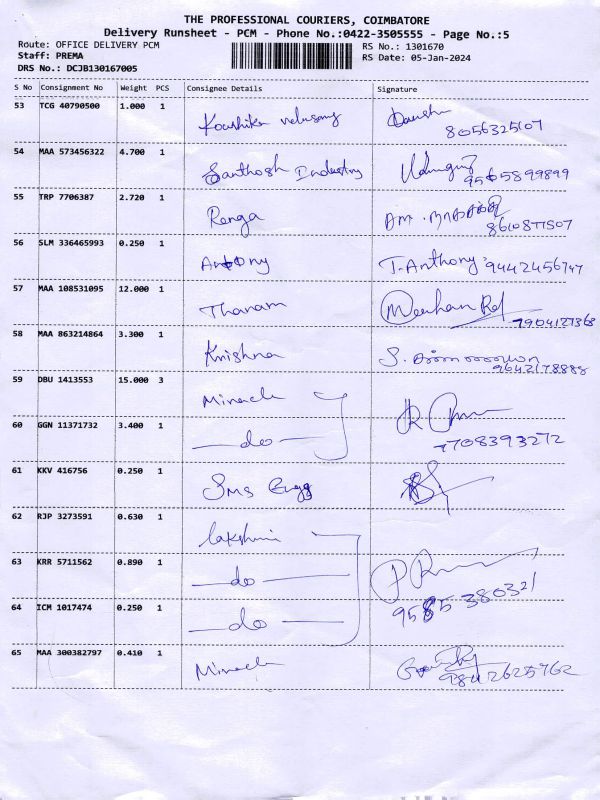 THE PROFESSIONAL COURIERS, COIMBATORE
Delivery Runsheet - PCM - Phone No.:0422-3505555 - Page No.:5
Route: OFFICE DELIVERY PCM
Staff: PREMA
DRS No.: DCJB130167005
RS No.: 1301670
RS Date: 05-Jan-2024
S No Consignment No Weight PCS Consignee Details Signature
53 TCG 40790500 1.000 1
8056325107
54 MAA 573456322 4.700 1 Santhosh Industry
9565899899
55 TRP 7706387 2.720 1 Renga
56 SLM 336465993 0.250 1 Antony T. Anthony 9442456747
57 MAA 108531095 12.000 1 Thanam
7904127368
58 MAA 863214864 3.300 1 Krishna
9642178888
59 DBU 1413553 15.000 3 Miracle
60 GGN 11371732 3.400 1 do
7708393272
61 KKV 416756 0.250 1 Sms Engg
62 RJP 3273591 0.630 1 lakshmi
63 KRR 5711562 0.890 1 do
64 ICM 1017474 0.250 1 do
9585380321
65 MAA 300382797 0.410 1 Miracle
9842625762